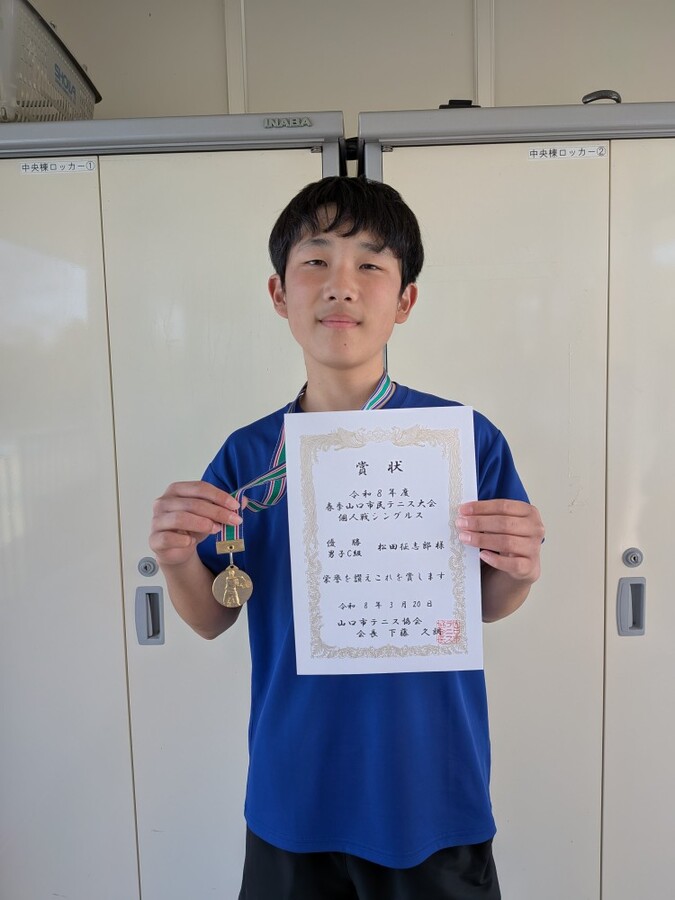 SHOWA
INABA
中央棟ロッカー①
中央棟ロッカー②
賞状
令和8年度
春季山口市民テニス大会
個人戦シングルス
優勝
男子C級 松田征志郎様
栄誉を讃えこれを賞します
令和8年3月20日
山口市テニス協会
会長 下藤